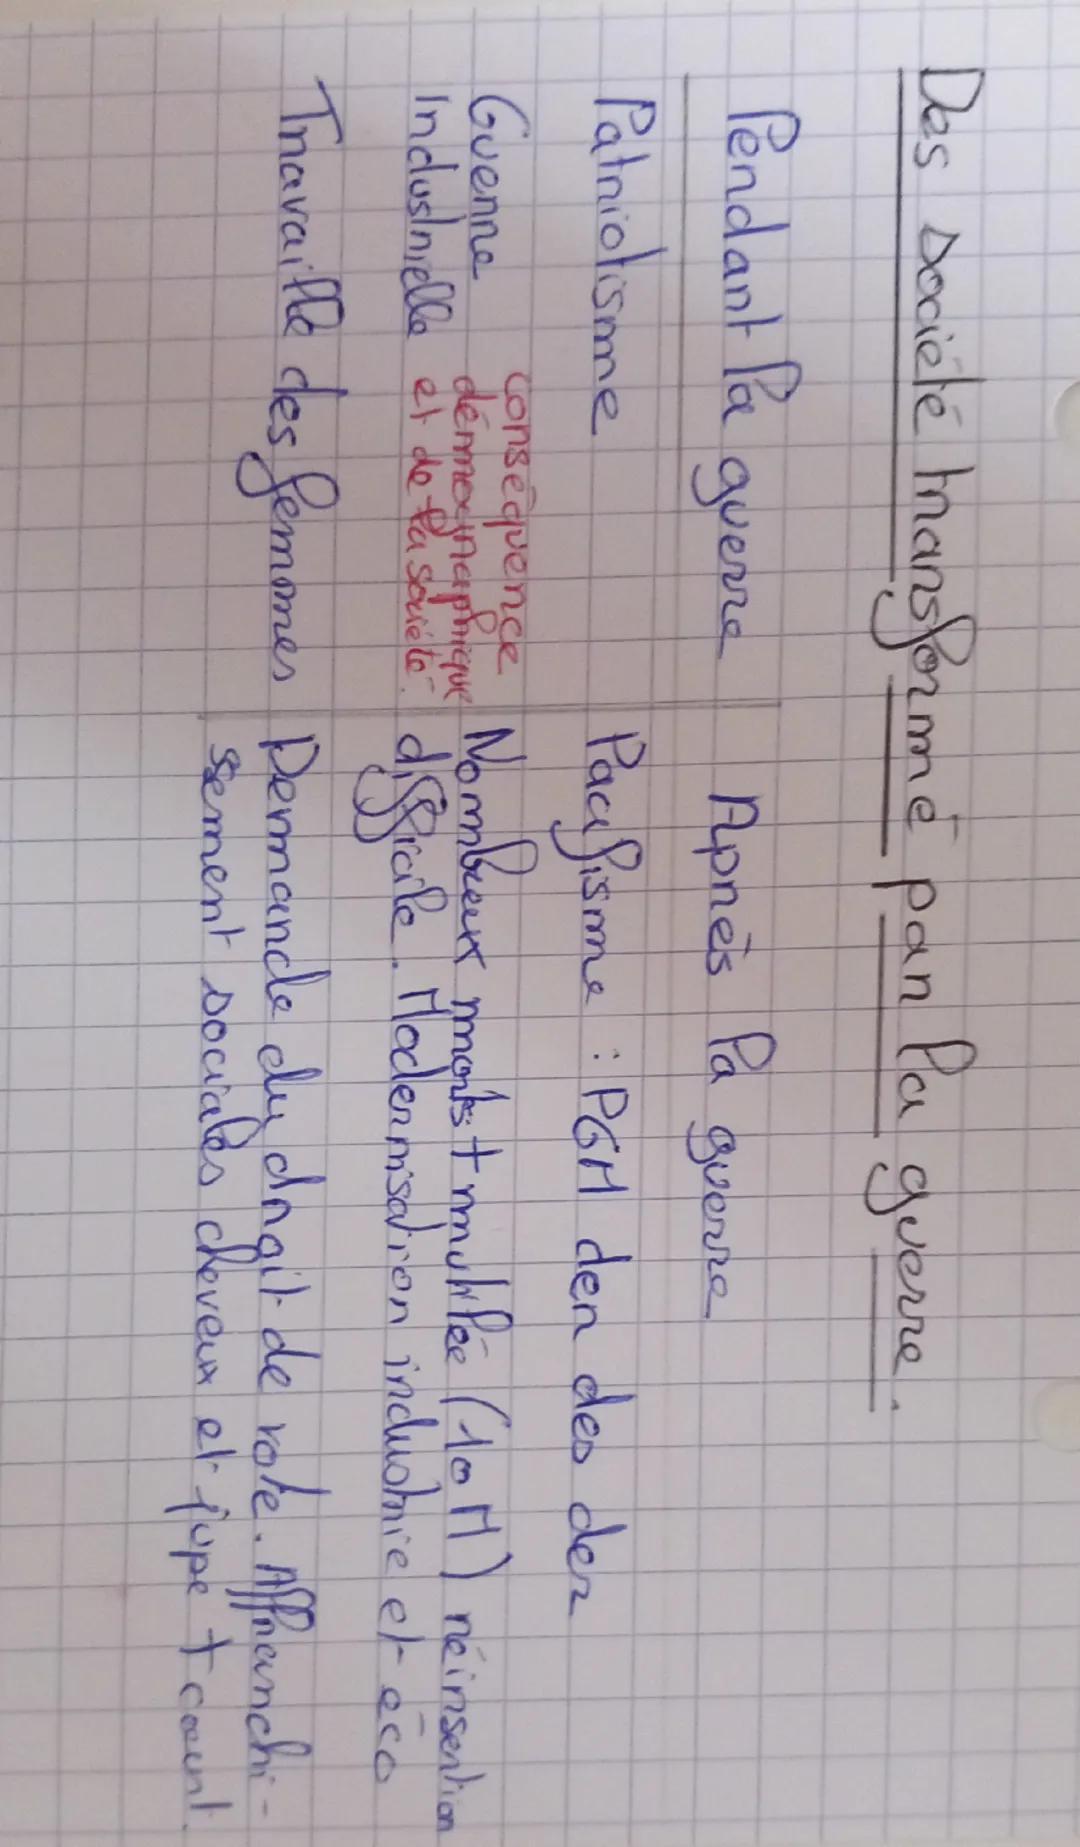 Des société transformé par la guerre.
Pendant la guerre
Après la guerre
Patriotisme
Pacifisme : PGM der des der
Guerre
Industrielle
conséquence
démographique
et de la société.
Nombreux morts + mutilée (10 M) réinsertion
difficile. Modernisation industrie et éco
Travaille des femmes
Demande du droit de vote. Affranchi-
ssement sociales cheveux et jupe + court.